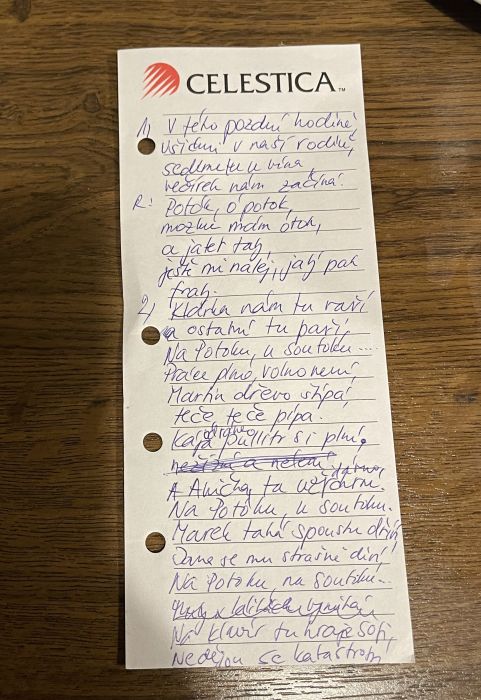 CELESTICA™
1, V této pozdní hodině
všichni v naší rodině,
sedíme tu u vína
večírek nám začíná.
R: Potok, ó potok,
mozku mám otok,
a jater tak,
ještě mi nalej, jaký pak
frak.
2, Klárka nám tu vaří
a ostatní tu paří,
Na Potoku, u soutoku....
Práce plno, volno není,
Martin dřevo štípá,
teče, teče pípa.
Kája půllitr si plní.
A Anička tu
Na Potoku, u soutoku.
Marek tahá spoustu dříví,
Jana se mu strašně diví
Na Potoku, na soutoku...
Na klavír tu hraje Sofi,
nedějou se katastrofy